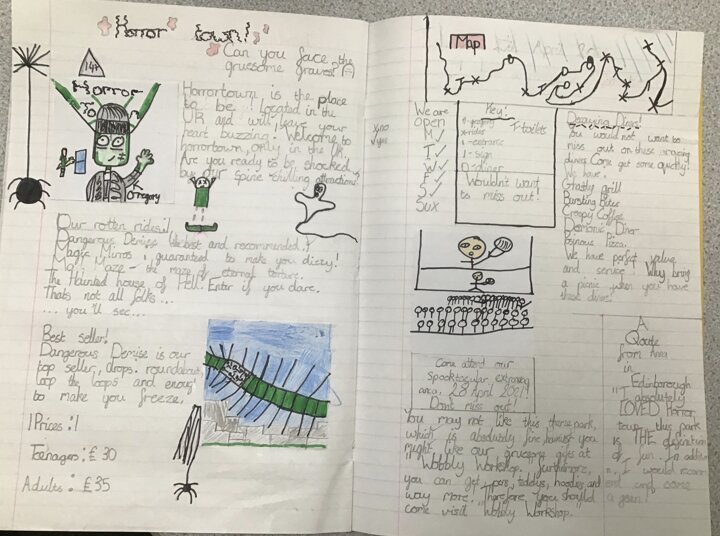 Horror town!
Can you face the
gruesome
14+
Horror
Town
Gregory
Horrortown is the place
to be! Located in the
UK and will leave your
heart buzzing! Welcome to
horrortown, only in the UK.
Are you ready to be shocked
by our spine chilling attractions?
Our rotten rides!
Dangerous Demise the best and recommended!
Magic Mirros, guaranteed to make you dizzy!
Maze - the maze of eternal torture.
The Haunted house of Hell. Enter if you dare.
Thats not all folks...
... you'll see...
Best seller!
Dangerous Demise is our
top seller, drops, roundabouts,
loop the loops and enough
to make you freeze.
!Prices:!
Teenagers: £30
Adults: £35
Map
x no
✓ yes
We are
open
M
T ✓
W ✓
T ✓
F ✓
S ✓
S u x
Key!
T-toilets
x-rides
Wouldn't want
to miss out!
Dinos!
You would not want to
miss out on these
diners. Come get some quickly!
We have:
Ghastly grill
Bursting Bites
Creepy Coffee
Demonic Diner
Poisnous Pizza.
We have perfect value
and service. Why bring
a picnic when you have
these diners!
Come attend our
Spooktacular opening
28 April 2021
Dont miss out!
You may not like this theme park,
which is absolutely fine however you
might like our gruesome gifts at
"Wobbly Workshop." Furthermore,
you can get, pens, teddys, hoodies and
way more. Therefore, you should
come visit "Wobbly Workshop."
A
Qoute
from
in
Edinborough
"I absolutely
LOVED Horror
town, this park
is THE definition
of fun. In addition
I would
and come
again!